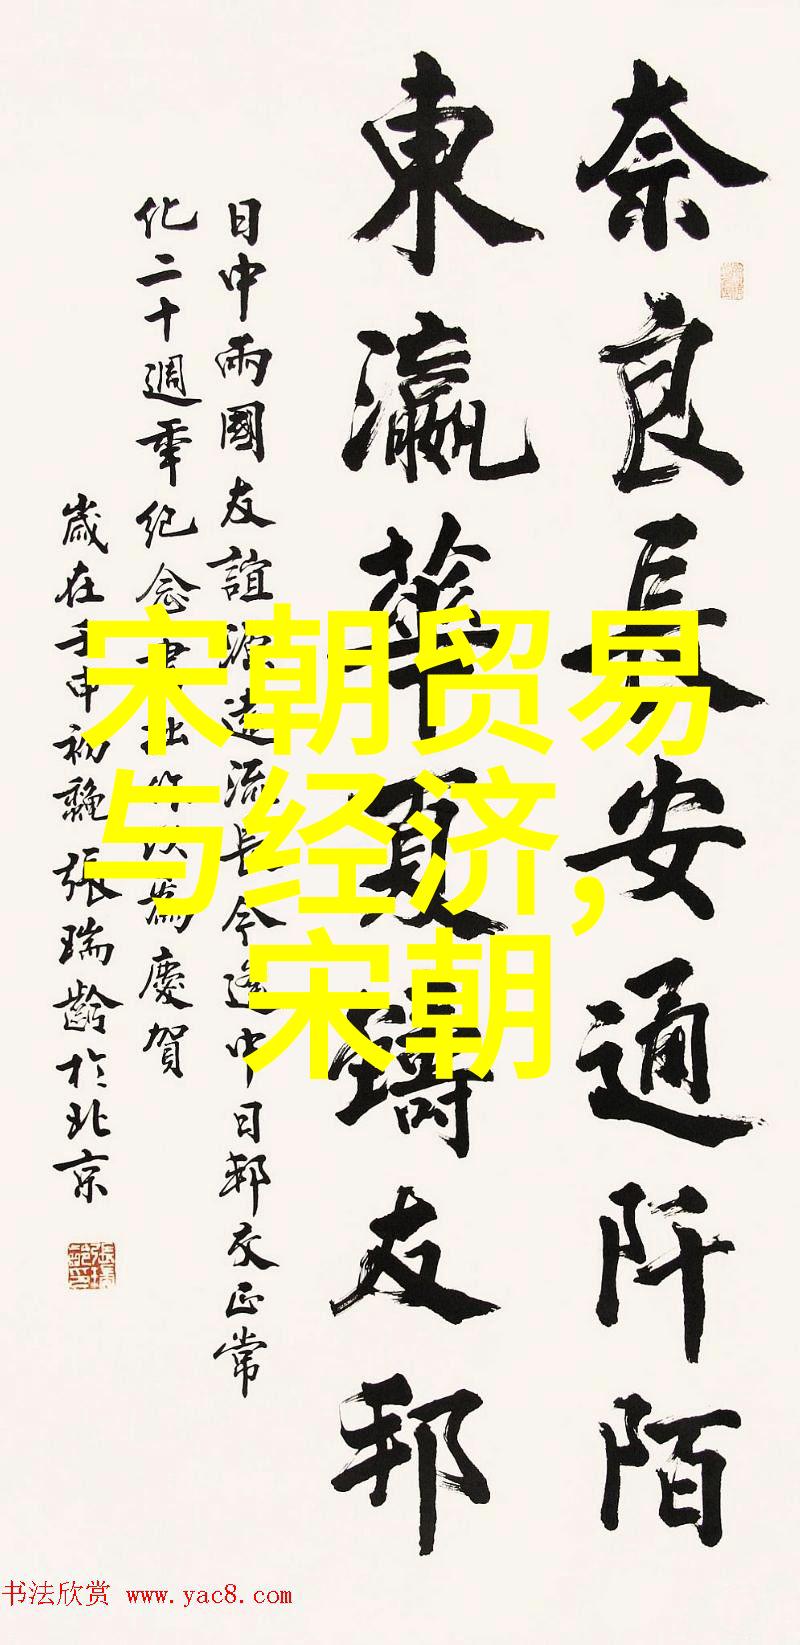 奈良長安通阡陌
東瀛華夏鑄友邦
日中兩國友誼源遠流長今逢中日邦交正常
化二十週年紀念書拙作以為慶賀
歲在壬申初
張瑞齡於北京
宋朝贸易
与经济，
宋朝
书法欣赏 www.yac8.com